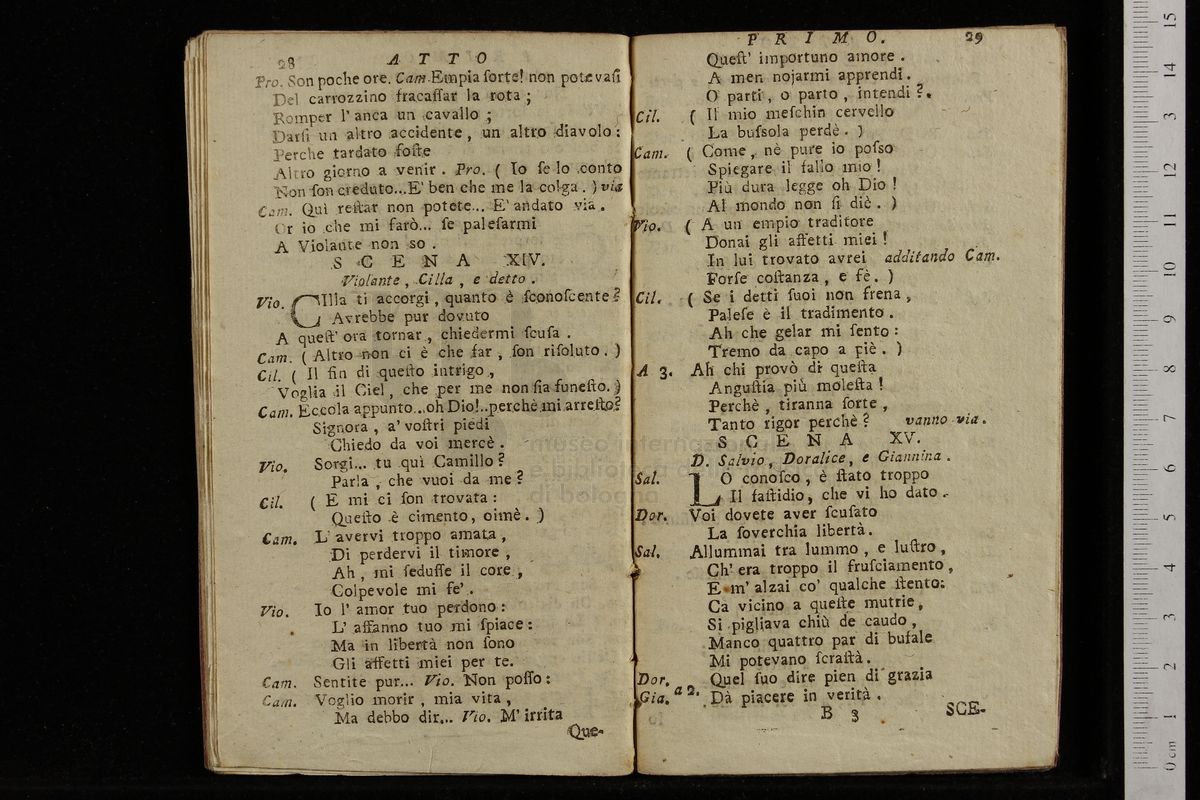 28
A T T O
Pro. Son poche ore. Cam. Empia ſorte! non potevaſi
Del carrozzino fracaſſar la rota ;
Romper l' anca un cavallo ;
Darſi un altro accidente , un altro diavolo :
Perche tardato foſte
Altro giorno a venir . Pro. ( Io ſe lo conto
Non ſon creduto...E' ben che me la colga . ) via
Cam. Quì reſtar non potete... E' andato via .
Or io che mi farò... ſe paleſarmi
A Violante non so .
S C E N A XIV.
Violante , Cilla , e detto .
Vio. CIlla ti accorgi , quanto è ſconoſcente ?
Avrebbe pur dovuto
A queſt' ora tornar , chiedermi ſcuſa .
Cam. ( Altro non ci è che far , ſon riſoluto . )
Cil. ( Il fin di queſto intrigo ,
Voglia il Ciel , che per me non ſia funeſto. )
Cam. Eccola appunto...oh Dio!..perchè mi arreſto?
Signora , a' voſtri piedi
Chiedo da voi mercè .
Vio. Sorgi... tu quì Camillo ?
Parla , che vuoi da me ?
Cil. ( E mi ci ſon trovata :
Queſto è cimento, oimè. )
Cam. L' avervi troppo amata ,
Di perdervi il timore ,
Ah , mi ſeduſſe il core ,
Colpevole mi fe' .
Vio. Io l' amor tuo perdono :
L' affanno tuo mi ſpiace :
Ma in libertà non ſono
Gli affetti miei per te.
Cam. Sentite pur... Vio. Non poſſo :
Cam. Voglio morir , mia vita ,
Ma debbo dir... Vio. M' irrita
Que-
P R I M O.
29
Queſt' importuno amore .
A men nojarmi apprendi .
O parti , o parto , intendi ?.
Cil. ( Il mio meſchin cervello
La buſsola perdè. )
Cam. ( Come , nè pure io poſso
Spiegare il fallo mio !
Più dura legge oh Dio !
Al mondo non ſi diè. )
Vio. ( A un empio traditore
Donai gli affetti miei !
In lui trovato avrei additando Cam.
Forſe coſtanza , e fè. )
Cil. ( Se i detti ſuoi non frena ,
Paleſe è il tradimento .
Ah che gelar mi ſento :
Tremo da capo a piè. )
A 3. Ah chi provò di queſta
Anguſtia più moleſta !
Perchè , tiranna ſorte ,
Tanto rigor perchè ? vanno via.
S C E N A XV.
D. Salvio, Doralice, e Giannina .
Sal. LO conoſco , è ſtato troppo
Il faſtidio, che vi ho dato .
Dor. Voi dovete aver ſcuſato
La ſoverchia libertà.
Sal. Allummai tra lummo , e luſtro ,
Ch' era troppo il fruſciamento ,
E m' alzai co' qualche ſtento:
Ca vicino a queſte mutrie,
Si pigliava chiù de caudo ,
Manco quattro par di bufale
Mi potevano ſcraſtà.
Dor. Quel ſuo dire pien di grazia
Gia. a 2. Dà piacere in verità .
B 3
SCE-
museo interna
e bibliote
di bologna
0 cm 1 2 3 4 5 6 7 8 9 10 11 12 13 14 15